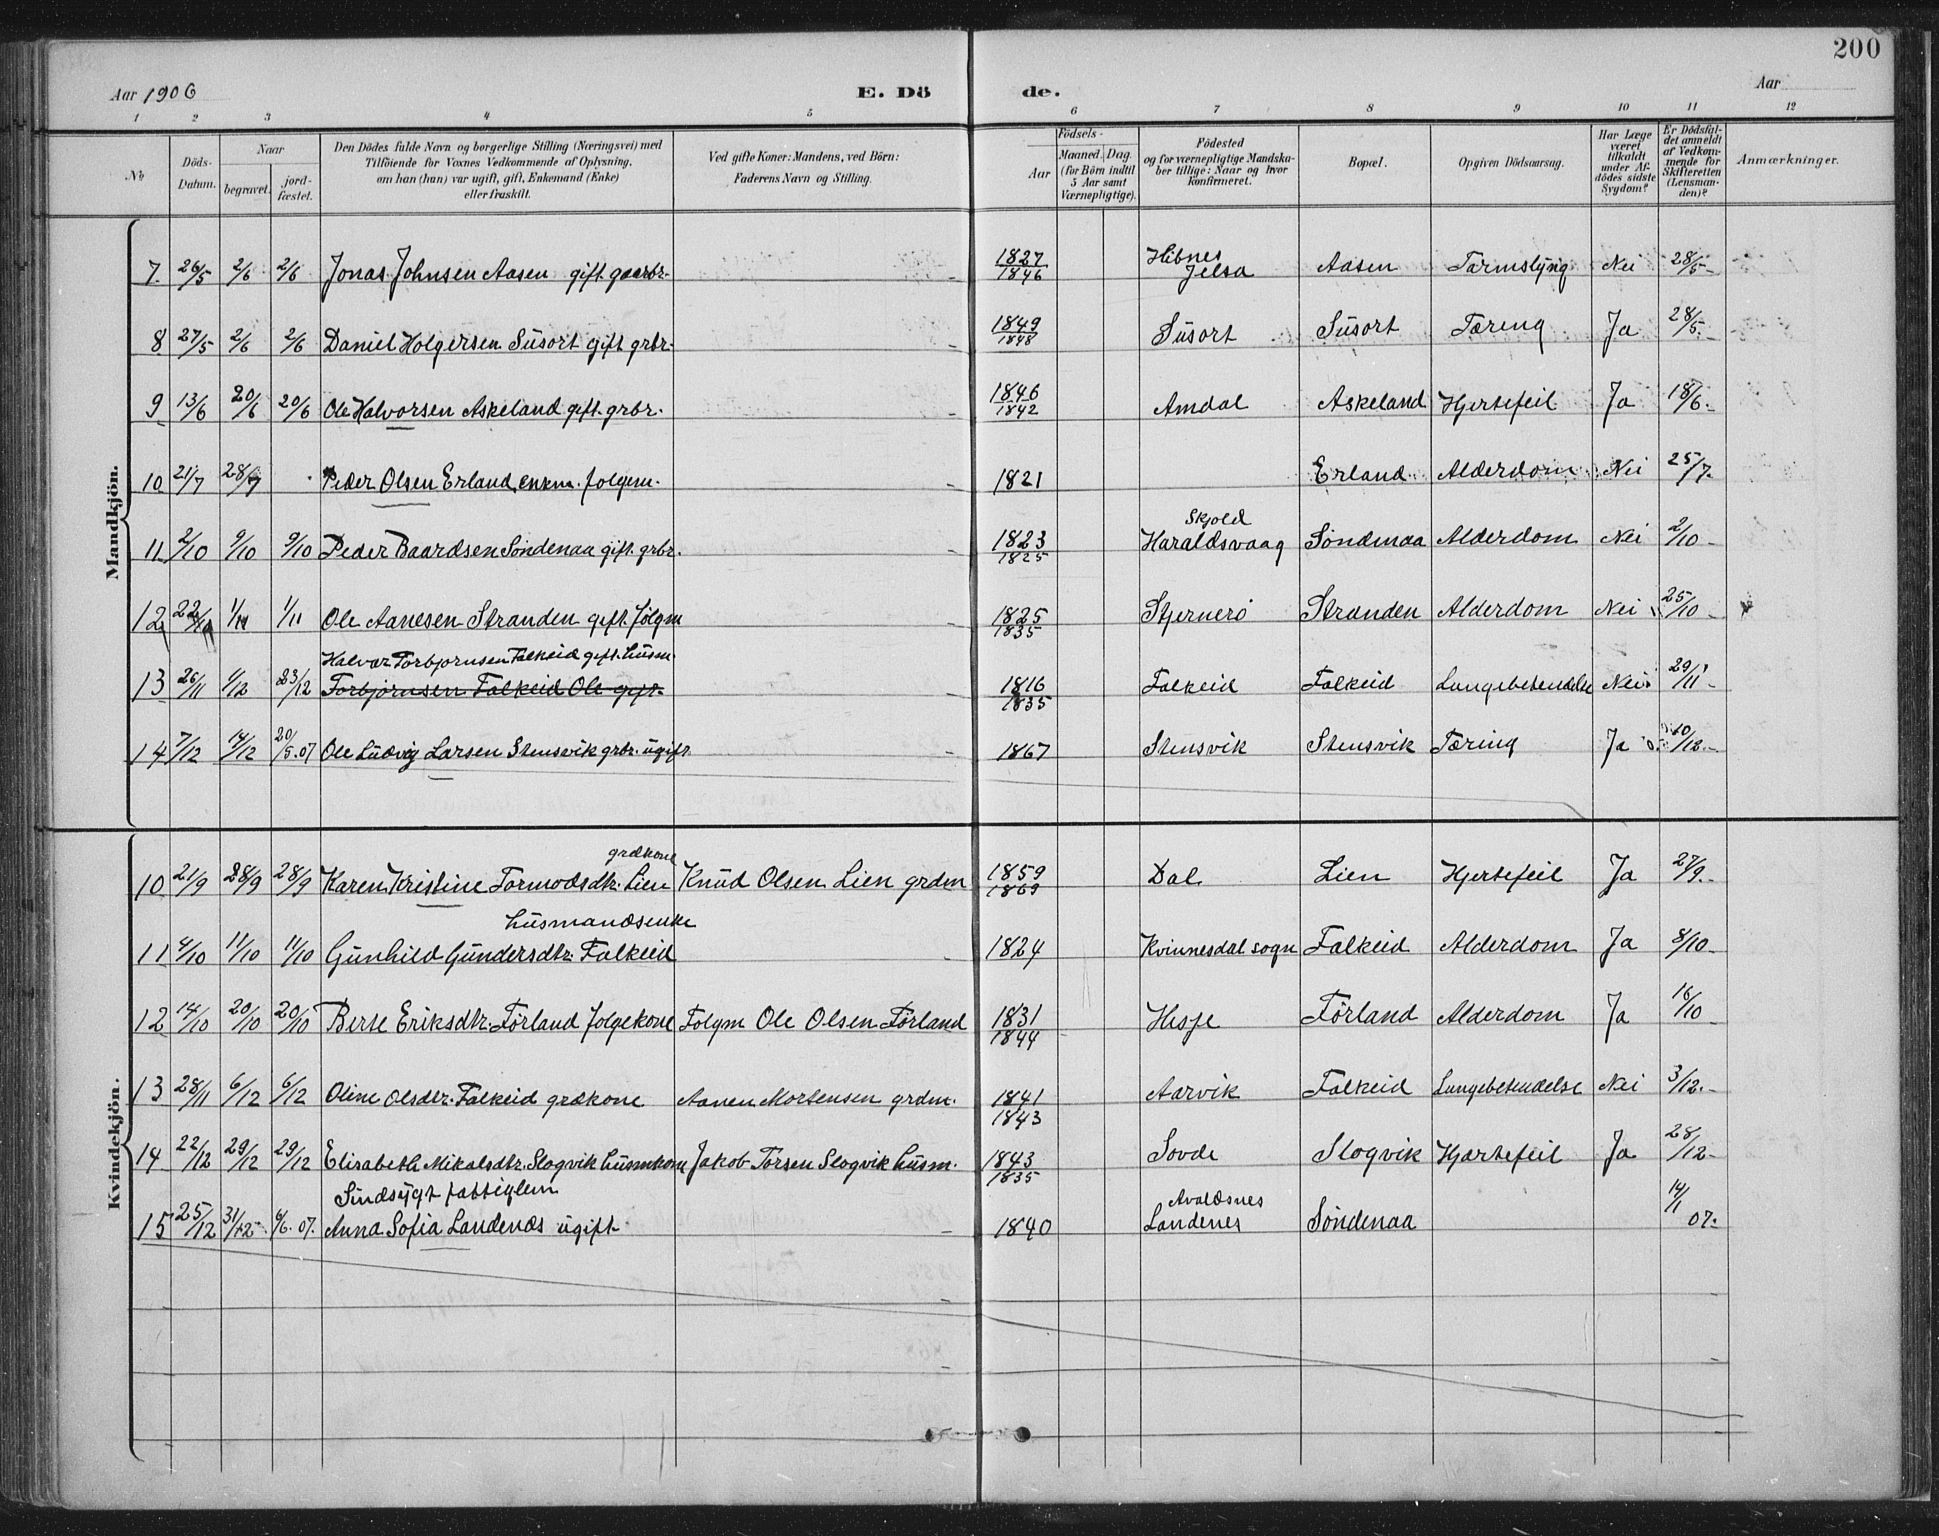 200
Aar 1906 E. Dö de. Aar
1 2 3 4 5 6 7 8 9 10 11 12
No
Döds-Datum.
Naar
begravet.
jord-fæstet.
Den Dödes fulde Navn og borgerlige Stilling (Næringsvei) med
Tilföiende for Voxnes Vedkommende af Oplysning,
om han (hun) var ugift, gift, Enkemand (Enke)
eller fraskilt.
Ved gifte Koner: Mandens, ved Börn:
Faderens Navn og Stilling.
Födsels-
Aar
Maaned. Dag.
(for Börn indtil
5 Aar samt
Værnepligtige).
Födested
og for værnepligtige Mandska-
ber tillige: Naar og hvor
konfirmeret.
Bopæl.
Opgiven Dödsaarsag.
Har Læge
været
tilkaldt
under Af-
dödes sidste
Sygdom?
Er Dödsfal-
det anmeldt
af Vedkom-
mende for
Skifteretten
(Lensman-
den)?
Anmærkninger.
Mandkjön.
7 26/5 2/6 2/6 Jonas Johnsen Aasen gift gaarbr. - 1827/1846 Hibnes Jelsa Aasen Tarmslyng Nei 28/5 -
8 27/5 2/6 2/6 Daniel Holgersen Susort gift grbr. - 1849/1848 Susort Susort Tæring Ja 28/5 -
9 13/6 20/6 20/6 Ole Halvorsen Askeland gift grbr. - 1846/1842 Amdal Askeland Hjertefeil Ja 18/6 -
10 21/7 28/7 Peder Olsen Erland enkm. folgem. - 1821 Erland Alderdom Nei 25/7 -
11 2/10 9/10 9/10 Peder Baardsen Søndenaa gift grbr. - 1823/1825 Skjold Haraldsvaag Søndenaa Alderdom Nei 2/10 -
12 22/10 1/11 1/11 Ole Aanesen Stranden gift folgm - 1825/1835 Stjernerö Stranden Alderdom Nei 25/10 -
Halvor Torbjørnsen Falkeid gift husm.
13 26/11 1/12 23/12 Torbjørnsen Falkeid Ole gift. - 1816/1835 Falkeid Falkeid Lungebetendelse Nei 29/11 -
14 7/12 14/12 20/5 07 Ole Ludvig Larsen Stensvik grbr. ugift - 1867 Stensvik Stensvik Tæring Ja 10/12 -
Kvindekjön.
grdkone
10 21/9 28/9 28/9 Karen Kristine Tormodsdtr. Lien Knud Olsen Lien grdm 1859/1869 Dal Lien Hjertefeil Ja 27/9 -
husmandsenke
11 4/10 11/10 11/10 Gunhild Gundersdtr. Falkeid - 1824 Kvinnesdal sogn Falkeid Alderdom Ja 8/10 -
12 14/10 20/10 20/10 Berte Eriksdtr. Førland folgekone Folgm Ole Olsen Førland 1831/1844 Hesje Førland Alderdom Ja 16/10 -
13 28/11 6/12 6/12 Oline Olsdtr. Falkeid grdkone Aanen Mortensen grdm. 1841/1843 Aarvik Falkeid Lungebetendelse Nei 3/12 -
14 22/12 29/12 29/12 Elisabeth Mikalsdtr. Slogvik husmkone Jakob Torsen Slogvik husm. 1843/1835 Sovde Slogvik Hjertefeil Ja 28/12 -
Sindsygt fattiglem
15 25/12 31/12 6/6 07. Anna Sofia Landenæs ugift - 1840 Avaldsnes Landenes Søndenaa 14/1 07.